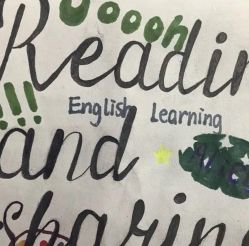 Ooooh
Readin
!!!
English Learning
and
sharin